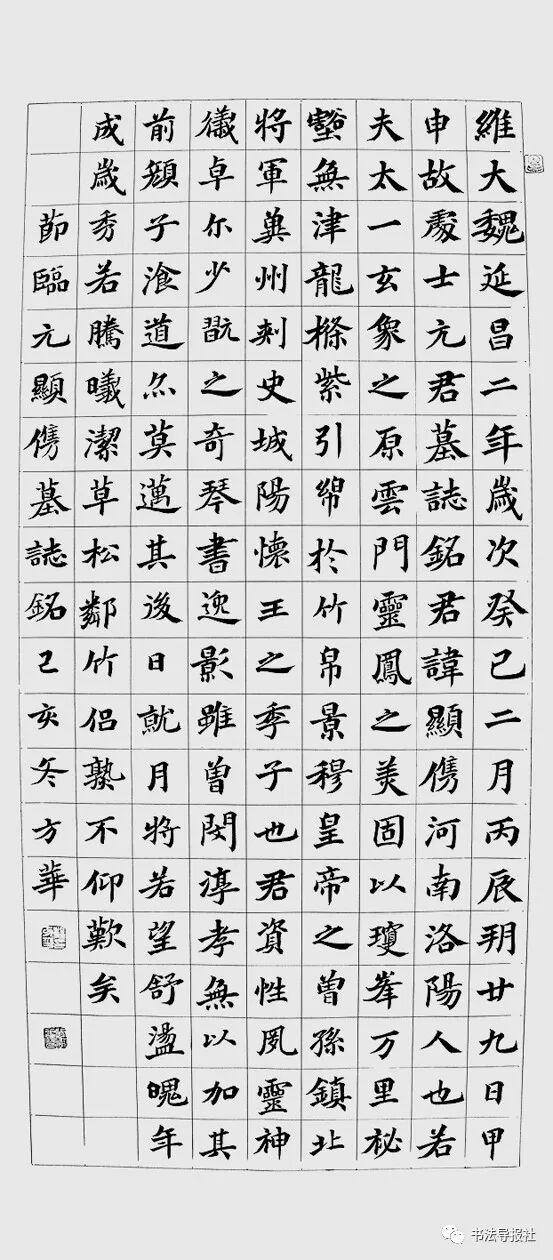 維大魏延昌二年歲次癸巳二月丙辰朔廿九日甲
申故處士元君墓誌銘君諱顯儁河南洛陽人也若
夫太一玄象之原雲門靈鳳之美固以瓊峯万里祕
壑無津龍紫引綿於竹帛景穆皇帝之曾孫鎮北
將軍冀州刺史城陽懷王之季子也君資性夙靈神
儀卓尔少翫之奇琴書逸影雖曾閔淳孝無以加其
前顏子湌道亦莫邁其後日就月將若望舒盪魄年
成歲秀若騰曦潔草松鄰竹侶熟不仰歎矣
節臨元顯儁墓誌銘己亥冬方華
书法导报社